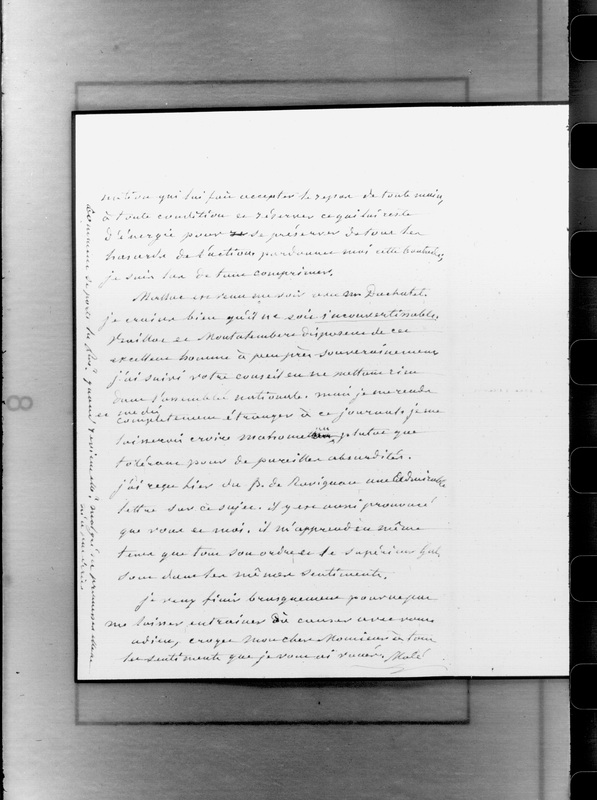 nution qui lui fait accepter le repos de toute main,
à toute condition et réserver ce qui lui reste
d'énergie pour se préserver de tous les
hasards de l'action. pardonnez moi cette boutade,
je suis las de tant comprimer.
est venu me voir avec Mr Duchatel.
je crains bien qu'il ne soit inconvertissable,
et Montalembert disposent de cet
excellent homme à peu près souverainement
j'ai suivi votre conseil en ne mettant rien
dans l'assemblée nationale. mais je me rends
complètement étranger à ce journal, je me
laisserai croire plutot que
tolérant pour de pareilles absurdités.
j'ai reçu hier du P. de Ravignan une admirable
lettre sur ce sujet. il y est aussi prononcé
que vous et moi. il m'apprend en même
tems que tout son ordre et le supérieur
sont dans les mêmes sentiments.
je veux finir brusquement pour ne pas
me laisser entrainer à causer avec vous
adieu, croyez mon cher Monsieur à tous
les sentiments que je vous ai voués. Molé
comment se porte le quand reviendra malgré ses promesses elle
n'a pas écrit
8